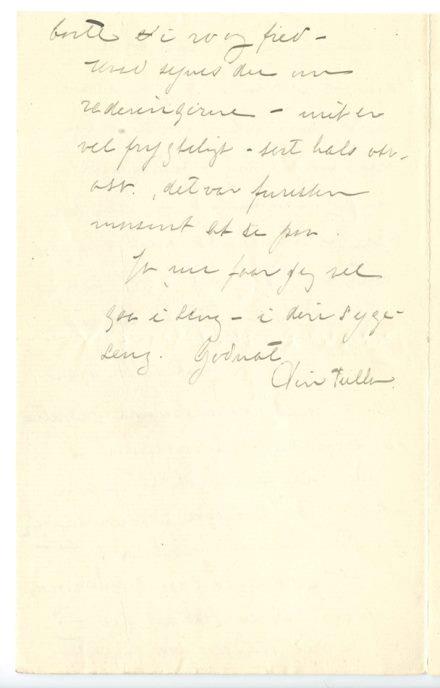 borte & i ro og fred –
Hvad synes du om
raderingerne – mit er
vel frygteligt – sort hals osv.
osv., det var forresten
morsomt at se paa.
Ja nu faar jeg vel
gaa i seng – i din syge-
seng. Godnat
Din Tulla.